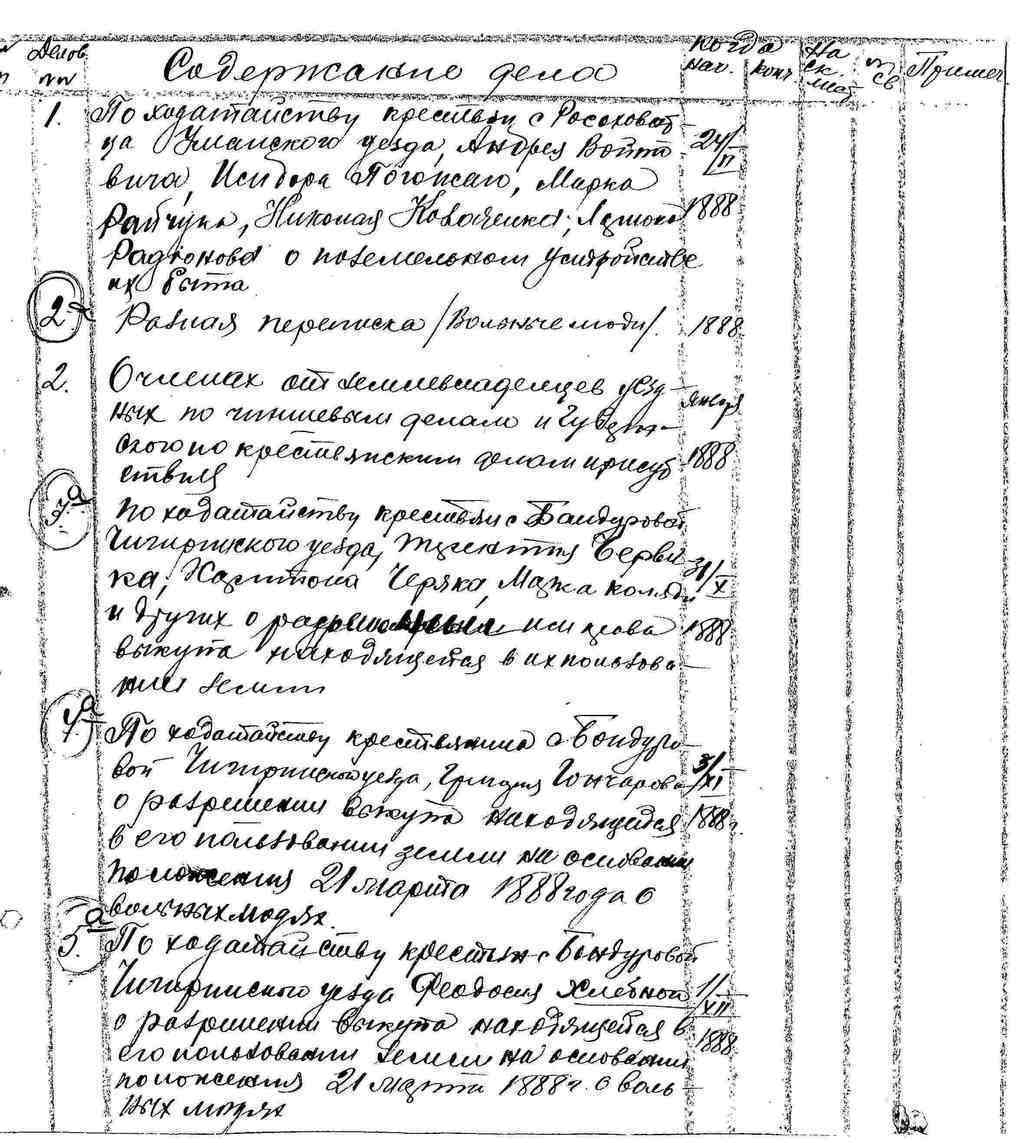 Делов Содержание дела Когда На Примеч
нач. конч. ск. св
1. По ходатайству крестьян с Росоховат-
ца Уманского уезда, Андрея Войто- 24/II
вича, Исидора Погожаго, Марка
Райчука, Николая Коваченка, 1888
Радионова о поземельном устройстве
их быта
2а Разная переписка /Вольные люди/. 1888
2. О членах от землевладельцев уезд- января
ных по чиншевым делам и Губерн-
ского по крестьянским делам присут- 1888
ствия
3а По ходатайству крестьян с Бандуровой
Чигиринского уезда, Терентия Черви-
ка, Харитона Черяка, Марка Коляди 31/X
и других о разрешении им права 1888
выкупа находящейся в их пользова-
нии земли
4.а По ходатайству крестьянина с Бондуро-
вой Чигиринского уезда, Григория Гончарова 3/XI
о разрешении выкупа находящейся 1888г.
в его пользовании земли на основании
положения 21 марта 1888 года о
вольных людях.
5.а По ходатайству крестьян с Бондуровой
Чигиринского уезда Феодосия Хлебной 1/XII
о разрешении выкупа находящейся в
его пользовании земли на основании 1888
положения 21 марта 1888 г. о воль-
ных людях